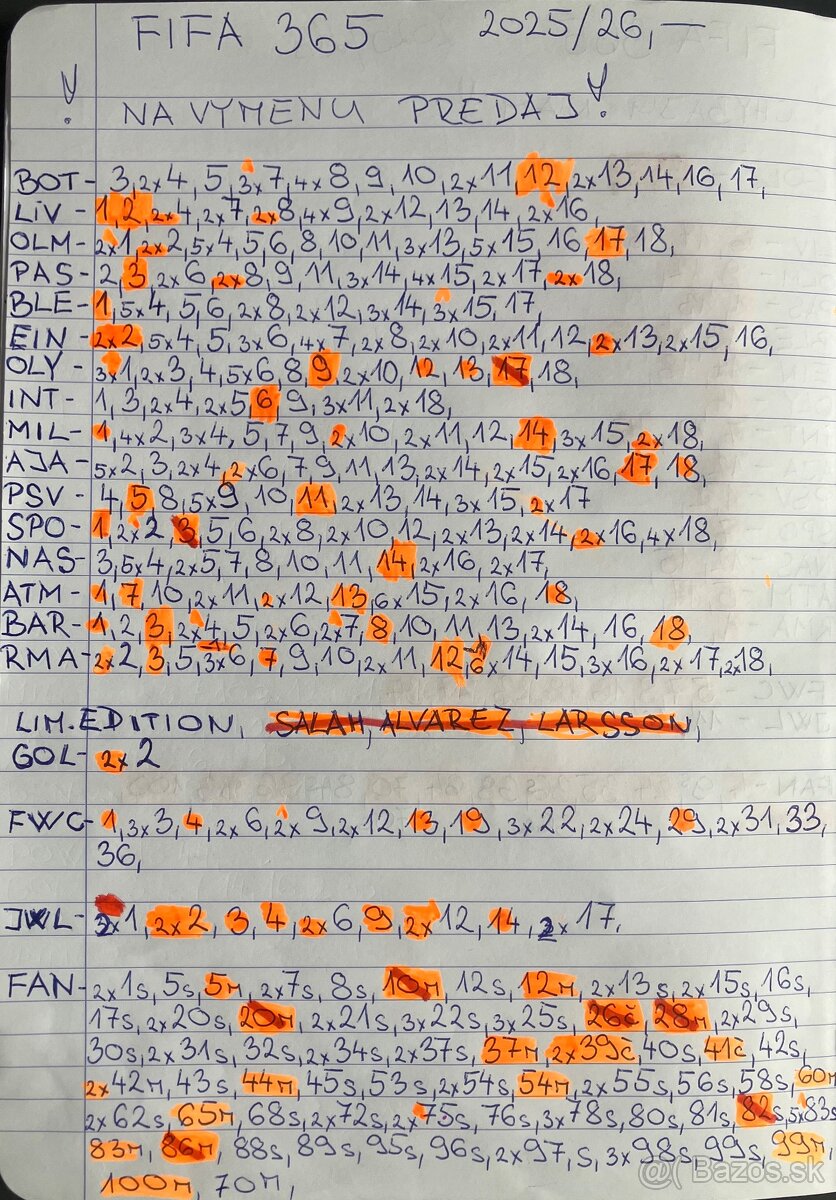 FIFA 365 2025/26,—
! NA VÝMENU PREDAJ !
BOT- 3, 2x4, 5, 3x7, 4x8, 9, 10, 2x11, 12, 2x13, 14, 16, 17,
LIV- 1, 2, 2x4, 2x7, 2x8, 4x9, 2x12, 13, 14, 2x16,
OLM- 2x1, 2x2, 5x4, 5, 6, 8, 10, 11, 3x13, 5x15, 16, 17, 18,
PAS- 2, 3, 2x6, 2x8, 9, 11, 3x14, 4x15, 2x17, 2x18,
BLE- 1, 5x4, 5, 6, 2x8, 2x12, 3x14, 3x15, 17,
EIN- 2x2, 5x4, 5, 3x6, 4x7, 2x8, 2x10, 2x11, 12, 2x13, 2x15, 16,
OLY- 3x1, 2x3, 4, 5x6, 8, 9, 2x10, 12, 13, 17, 18,
INT- 1, 3, 2x4, 2x5, 6, 9, 3x11, 2x18,
MIL- 1, 4x2, 3x4, 5, 7, 9, 2x10, 2x11, 12, 14, 3x15, 2x18,
AJA- 5x2, 3, 2x4, 2x6, 7, 9, 11, 13, 2x14, 2x15, 2x16, 17, 18,
PSV- 4, 5, 8, 5x9, 10, 11, 2x13, 14, 3x15, 2x17
SPO- 1, 2x2, 3, 5, 6, 2x8, 2x10, 12, 2x13, 2x14, 2x16, 4x18,
NAS- 3, 5x4, 2x5, 7, 8, 10, 11, 14, 2x16, 2x17,
ATM- 1, 7, 10, 2x11, 2x12, 13, 6x15, 2x16, 18,
BAR- 1, 2, 3, 2x4, 5, 2x6, 2x7, 8, 10, 11, 13, 2x14, 16, 18,
RMA- 2x2, 3, 5, 3x6, 7, 9, 10, 2x11, 12, 6x14, 15, 3x16, 2x17, 2x18,
LIM. EDITION, SALAH, ALVAREZ, LARSSON,
GOL- 2x2
FWC- 1, 3x3, 4, 2x6, 2x9, 2x12, 13, 19, 3x22, 2x24, 29, 2x31, 33,
36,
JWL- 3x1, 2x2, 3, 4, 2x6, 9, 2x12, 14, 2x17.
FAN- 2x1s, 5s, 5m, 2x7s, 8s, 10m, 12s, 12m, 2x13s, 2x15s, 16s,
17s, 2x20s, 20m, 2x21s, 3x22s, 3x25s, 26č, 28m, 2x29s,
30s, 2x31s, 32s, 2x34s, 2x37s, 37m, 2x39č, 40s, 41č, 42s,
2x42m, 43s, 44m, 45s, 53s, 2x54s, 54m, 2x55s, 56s, 58s, 60m
2x62s, 65m, 68s, 2x72s, 2x75s, 76s, 3x78s, 80s, 81s, 82s, 5x83s
83m, 86m, 88s, 89s, 95s, 96s, 2x97,s, 3x98s, 99s, 99m,
100m, 70m,
@( Bazos.sk